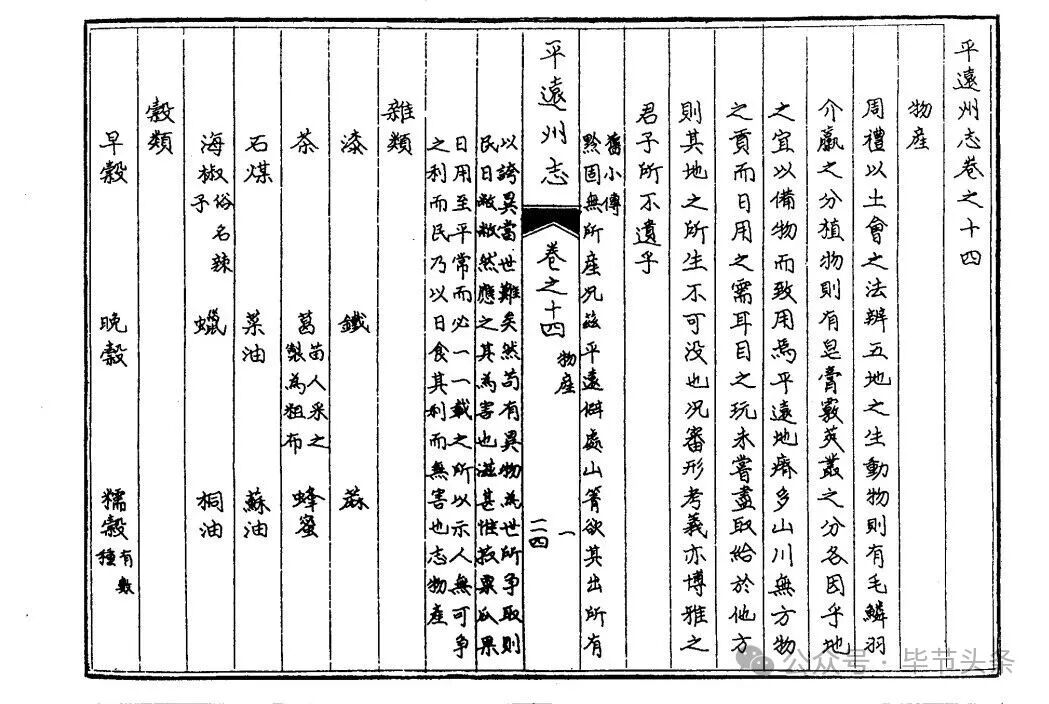 平遠州志卷之十四
物産
周禮以土會之法辨五地之生動物則有毛鱗羽
介蠃之分植物則有皂膏覈莢叢之分各因乎地
之宜以備物而致用焉平遠地瘠多山川無方物
之貢而日用之需耳目之玩未嘗盡取給於他方
則其地之所生不可没也况審形考義亦博雅之
君子所不遺乎
舊小傳
黔固無所産况兹平遠僻處山箐欲其出所有
平遠州志 卷之十四 物産 一
二四
以誇異當世難矣然苟有異物為世所争取則
民日敝敝然應之其為害也滋甚惟菽粟瓜果
日用至平常而必一一載之所以示人無可争
之利而民乃以日食其利而無害也志物産
雜類
漆 鐵 蔴
茶 葛苗人采之製為粗布 蜂蜜
石煤 菜油 蘇油
海椒俗名辣子 蠟 桐油
穀類
早穀 晚穀 糯穀有數種
公众号·毕节头条